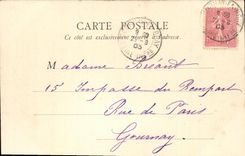 CARTE POSTALE
Ce côté est exclusivement réservé à l'adresse
Madame Bréant
15 Impasse du Rempart
Rue de Paris
Gournay